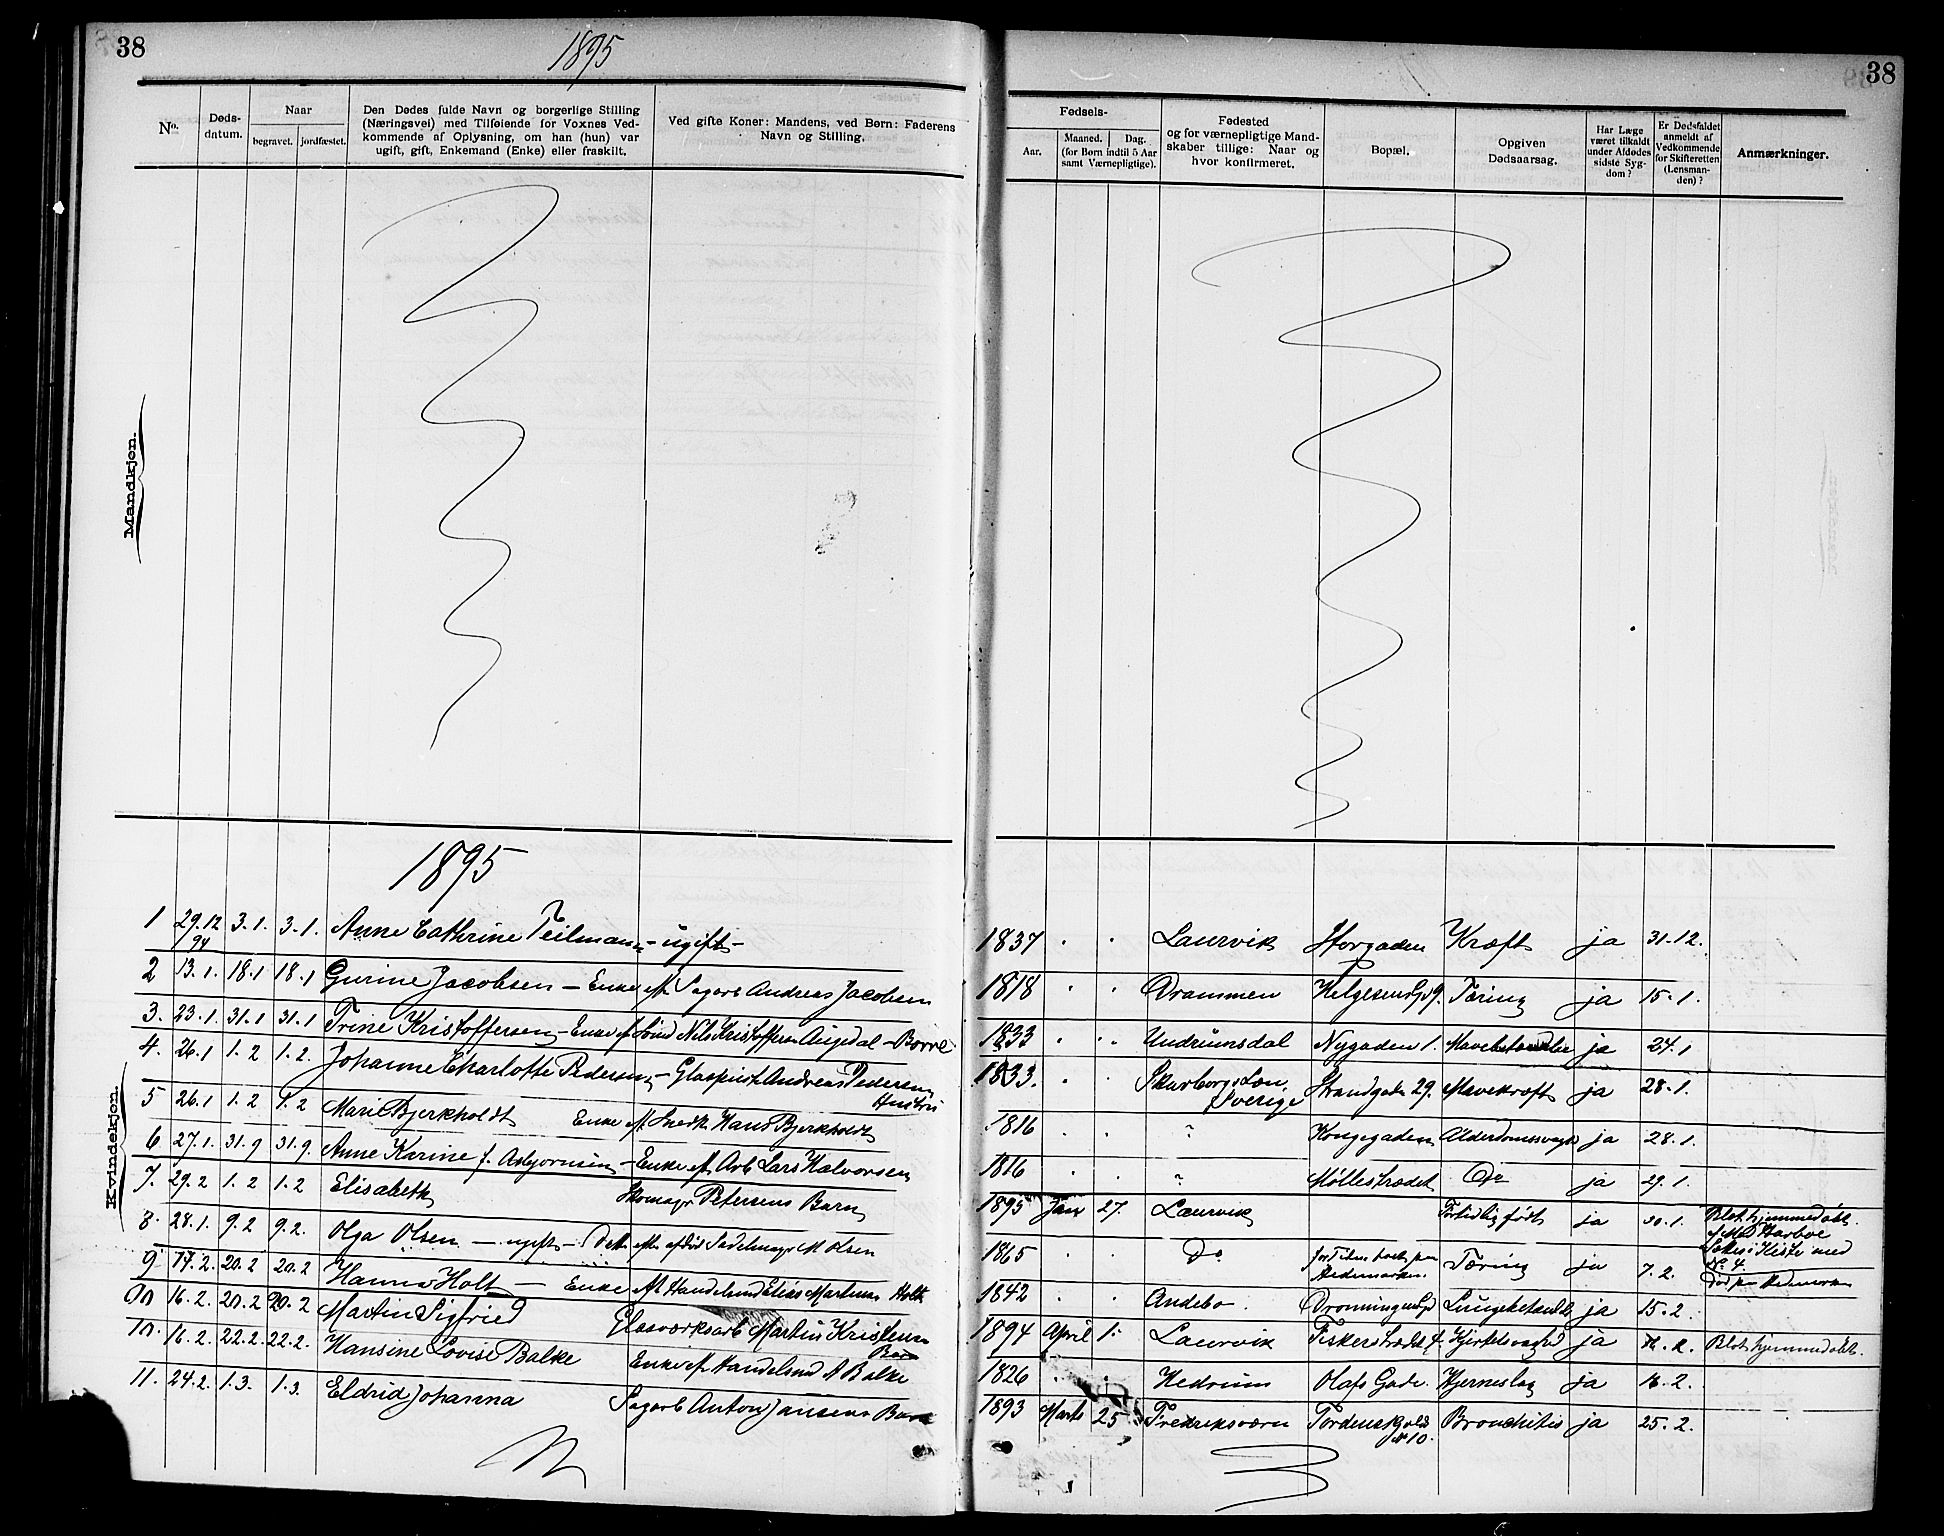 38
1895
38
No.
Døds-
datum.
Naar
begravet.
jordfæstet.
Den Dødes fulde Navn og borgerlige Stilling
(Næringsvei) med Tilføiende for Voxnes Ved-
kommende af Oplysning, om han (hun) var
ugift, gift, Enkemand (Enke) eller fraskilt.
Ved gifte Koner: Mandens, ved Børn: Faderens
Navn og Stilling.
Fødsels-
Aar.
Maaned.
Dag.
(for Børn indtil 5 Aar
samt Værnepligtige).
Fødested
og for værnepligtige Mand-
skaber tillige: Naar og
hvor konfirmeret.
Bopæl.
Opgiven
Dødsaarsag.
Har Læge
været tilkaldt
under Afdødes
sidste Syg-
dom?
Er Dødsfaldet
anmeldt af
Vedkommende
for Skifteretten
(Lensman-
den)?
Anmærkninger.
Mandkjøn.
Kvindekjøn.
1895
1 29.12 94 3.1. 3.1. Anne Cathrine Teilmann - ugift - 1837 Laurvik Kræft ja 31.12.
2 13.1. 18.1 18.1 Gurine Jacobsen - Enke ef. Sagarb Andreas Jacobsen 1818 Drammen Helgesensgd 9. Tæring ja 15.1.
3. 23.1. 31.1 31.1 Trine Kristoffersen - Enke ef. Nils Kristoffersen - Borre 1833 Undrumsdal Nygaden 1. ja 24.1
4. 26.1 1.2 1.2. Johanne Charlotte Pedersen - Glaspust. Andreas Pedersens
Hustru 1833. Skarborgs Læn,
Sverige Strandgaden 29. Mavekræft ja 28.1.
5 26.1 1.2 1.2 Marie Bjerkholdt Enke ef. Snedk. Hans Bjerkholdt 1816 " Kongegaden Alderdomssvagh ja 28.1.
6 27.1. 31.9 31.9. Anne Karine f. Asbjørnsen - Enke ef. Arb. Lars Halvorsen 1816 " Møllestrædet Do ja 29.1.
7. 29.2 1.2 1.2 Elisabeth Skomagr Petersens Barn 1895 Jan 27. Laurvik Fortidlig født ja 30.1. Blot hjemmedøbt.
8. 28.1. 9.2 9.2. Olga Olsen - ugift - Datt. efter afdød Sadelmagr M Olsen 1865 Do
Hedemarken. Tæring ja 7.2.
9 17.2. 20.2 20.2 Hanna Holt - Enke ef. Handelsmd Elias Martinus Holt 1842 Andebo. Dronningensgd ja 15.2.
10 16.2. 20.2 20.2 Martin Sigfried Glasværksarb Martin Kristensen
Barn 1894 April 1. Laurvik Fiskerstrædet 4. ja Blot hjemmedøbt.
10. 16.2. 22.2. 22.2. Hansine Lovise Balke Enke ef. Handelsmd A Balke 1826 Hedrum Olafs Gade. Hjerneslag ja 16.2.
11. 24.2. 1.3. 1.3. Eldrid Johanna Sagarb Anton Jansens Barn 1893 Marts 25 Fredriksværn Tordenskjolds
No 10. Bronchitis ja 25.2.